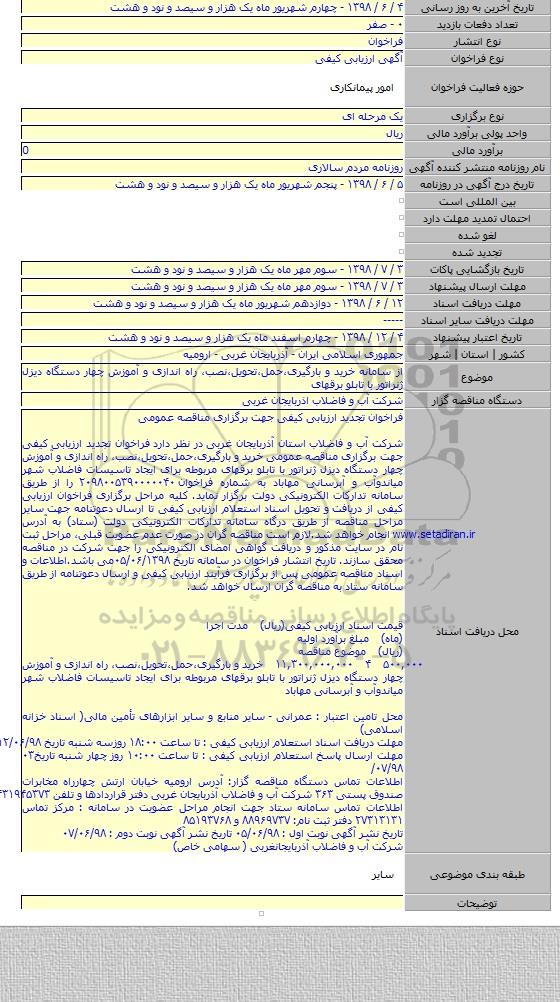 تاریخ آخرین به روز رسانی
۴ / ۶ / ۱۳۹۸ - چهارم شهریور ماه یک هزار و سیصد و نود و هشت
تعداد دفعات بازدید
۰ - صفر
نوع انتشار
فراخوان
نوع فراخوان
آگهی ارزیابی کیفی
حوزه فعالیت فراخوان
امور پیمانکاری
نوع برگزاری
یک مرحله ای
واحد پولی برآورد مالی
ریال
برآورد مالی
0
نام روزنامه منتشر کننده آگهی
روزنامه مردم سالاری
تاریخ درج آگهی در روزنامه
۵ / ۶ / ۱۳۹۸ - پنجم شهریور ماه یک هزار و سیصد و نود و هشت
بین المللی است
احتمال تمدید مهلت دارد
لغو شده
تجدید شده
تاریخ بازگشایی پاکات
۳ / ۷ / ۱۳۹۸ - سوم مهر ماه یک هزار و سیصد و نود و هشت
مهلت ارسال پیشنهاد
۳ / ۷ / ۱۳۹۸ - سوم مهر ماه یک هزار و سیصد و نود و هشت
مهلت دریافت اسناد
۱۲ / ۶ / ۱۳۹۸ - دوازدهم شهریور ماه یک هزار و سیصد و نود و هشت
مهلت دریافت سایر اسناد
-----
تاریخ اعتبار پیشنهاد
۴ / ۱۲ / ۱۳۹۸ - چهارم اسفند ماه یک هزار و سیصد و نود و هشت
کشور | استان | شهر
جمهوری اسلامی ایران - آذربایجان غربی - ارومیه
موضوع
از سامانه خرید و بارگیری،حمل،تحویل،نصب، راه اندازی و آموزش چهار دستگاه دیزل
ژنراتور با تابلو برقهای
دستگاه مناقصه گزار
شرکت آب و فاضلاب اذربایجان غربی
محل دریافت اسناد
فراخوان تجدید ارزیابی کیفی جهت برگزاری مناقصه عمومی
شرکت آب و فاضلاب استان آذربایجان غربی در نظر دارد فراخوان تجدید ارزیابی کیفی
جهت برگزاری مناقصه عمومی خرید و بارگیری،حمل،تحویل،نصب، راه اندازی و آموزش
چهار دستگاه دیزل ژنراتور با تابلو برقهای مربوطه برای ایجاد تاسیسات فاضلاب شهر
میاندوآب و آبرسانی مهاباد به شماره فراخوان ۲۰۹۸۰۰۵۳۹۰۰۰۰۰۴۰ را از طریق
سامانه تدارکات الکترونیکی دولت برگزار نماید. کلیه مراحل برگزاری فراخوان ارزیابی
کیفی از دریافت و تحویل اسناد استعلام ارزیابی کیفی تا ارسال دعوتنامه جهت سایر
مراحل مناقصه از طریق درگاه سامانه تدارکات الکترونیکی دولت (ستاد) به آدرس
www.setadiran.ir انجام خواهد شد.لازم است مناقصه گران در صورت عدم عضویت قبلی، مراحل ثبت
نام در سایت مذکور و دریافت گواهی امضای الکترونیکی را جهت شرکت در مناقصه
محقق سازند. تاریخ انتشار فراخوان در سامانه تاریخ ۰۵/۰۶/۱۳۹۸می باشد.اطلاعات و
اسناد مناقصه عمومی پس از برگزاری فرآیند ارزیابی کیفی و ارسال دعوتنامه از طریق
سامانه ستاد به مناقصه گران ارسال خواهد شد.
قیمت اسناد ارزیابی کیفی(ریال) مدت اجرا
(ماه) مبلغ برآورد اولیه
(ریال) موضوع مناقصه
۵۰۰,۰۰۰ ۴ ۱۱,۳۰۰,۰۰۰,۰۰۰ خرید و بارگیری،حمل،تحویل،نصب، راه اندازی و آموزش
چهار دستگاه دیزل ژنراتور با تابلو برقهای مربوطه برای ایجاد تاسیسات فاضلاب شهر
میاندوآب و آبرسانی مهاباد
محل تامین اعتبار : عمرانی - سایر منابع و سایر ابزارهای تأمین مالی( اسناد خزانه
اسلامی)
مهلت دریافت اسناد استعلام ارزیابی کیفی : تا ساعت ۱۸:۰۰ روزسه شنبه تاریخ ۱۲/۰۶/۹۸
مهلت ارسال پاسخ استعلام ارزیابی کیفی : تا ساعت ۱۰:۰۰ روز چهار شنبه تاریخ۰۳
/۰۷/۹۸
اطلاعات تماس دستگاه مناقصه گزار: آدرس ارومیه خیابان ارتش چهارراه مخابرات
صندوق پستی ۳۶۳ شرکت آب و فاضلاب آذربایجان غربی دفتر قراردادها و تلفن ۴۳۱۹۴۵۳۷۳
اطلاعات تماس سامانه ستاد جهت انجام مراحل عضویت در سامانه : مرکز تماس
۲۷۳۱۳۱۳۱ دفتر ثبت نام: ۸۸۹۶۹۷۳۷ و ۸۵۱۹۳۷۶۸
تاریخ نشر آگهی نوبت اول : ۰۵/۰۶/۹۸ تاریخ نشر آگهی نوبت دوم : ۰۷/۰۶/۹۸
شرکت آب و فاضلاب آذربایجانغربی ( سهامی خاص)
طبقه بندی موضوعی
سایر
توضیحات
پایگاه اطلاع رسانی مناقصه و مزایده